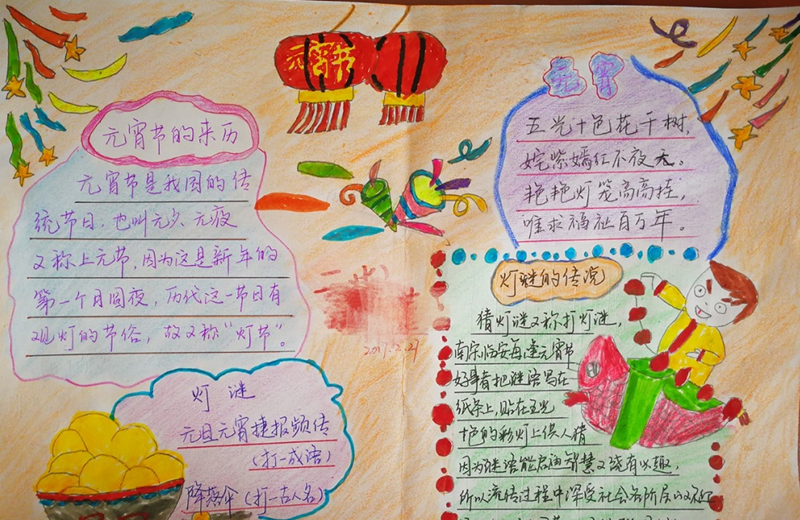 元宵节
元宵节的来历
元宵节是我国的传
统节日,也叫元夕、元夜
又称上元节,因为这是新年的
第一个月圆夜,历代这一节日有
观灯的节俗,故又称“灯节”。
灯谜
元旦元宵捷报频传
(打一成语)
降落伞(打一古人名)
元宵
五光十色花千树,
姹紫嫣红不夜天。
艳艳灯笼高高挂,
唯求福祉百万年。
灯谜的传说
猜灯谜又称打灯谜,
南宋临安每逢元宵节
好事者把谜语写在
纸条上,贴在五光
十色的彩灯上供人猜
因为谜语能启迪智慧又饶有兴趣,
所以流传过程中深受社会各阶层的欢迎